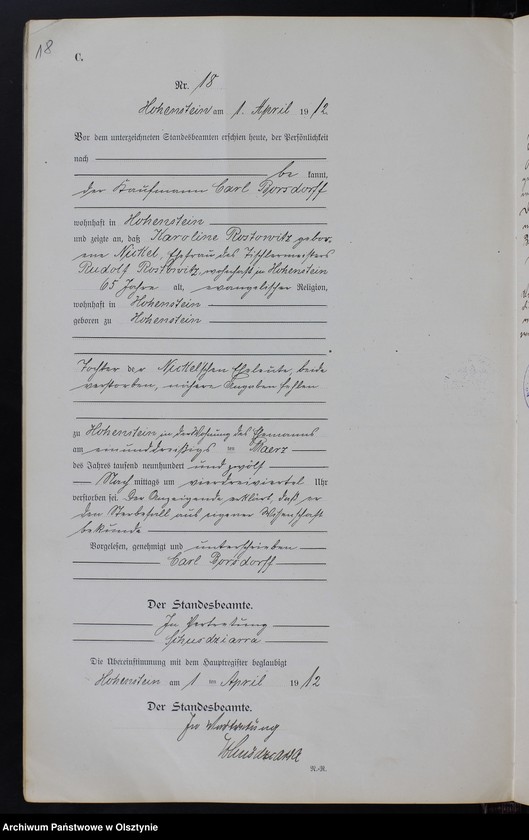 18
C.
Nr. 18
Hohenstein am 1. April 1912.
Vor dem unterzeichneten Standesbeamten erschien heute, der Persönlichkeit
nach
be kannt,
der Kaufmann Carl Borsdorff
wohnhaft in Hohenstein
und zeigte an, daß Karoline Rostowitz gebor-
ene Nickel, Ehefrau des Tischlermeisters
Rudolf Rostowitz, wohnhaft in Hohenstein
65 Jahre alt, evangelischer Religion,
wohnhaft in Hohenstein
geboren zu Hohenstein
Tochter der Nickelschen Eheleute, beide
verstorben, nähere Angaben fehlen
zu Hohenstein, in der Wohnung des Ehemanns
am einunddreißigs ten Maerz
des Jahres tausend neunhundert und zwölf
Nach mittags um vierdreiviertel Uhr
verstorben sei. Der Anzeigende erklärt, daß er
den Sterbefall aus eigener Wissenschaft
bekunde
Vorgelesen, genehmigt und unterschrieben
Carl Borsdorff
Der Standesbeamte.
In Vertretung
Die Übereinstimmung mit dem Hauptregister beglaubigt
Hohenstein am 1 ten April 1912
Der Standesbeamte.
In Vertretung
Archiwum Państwowe w Olsztynie